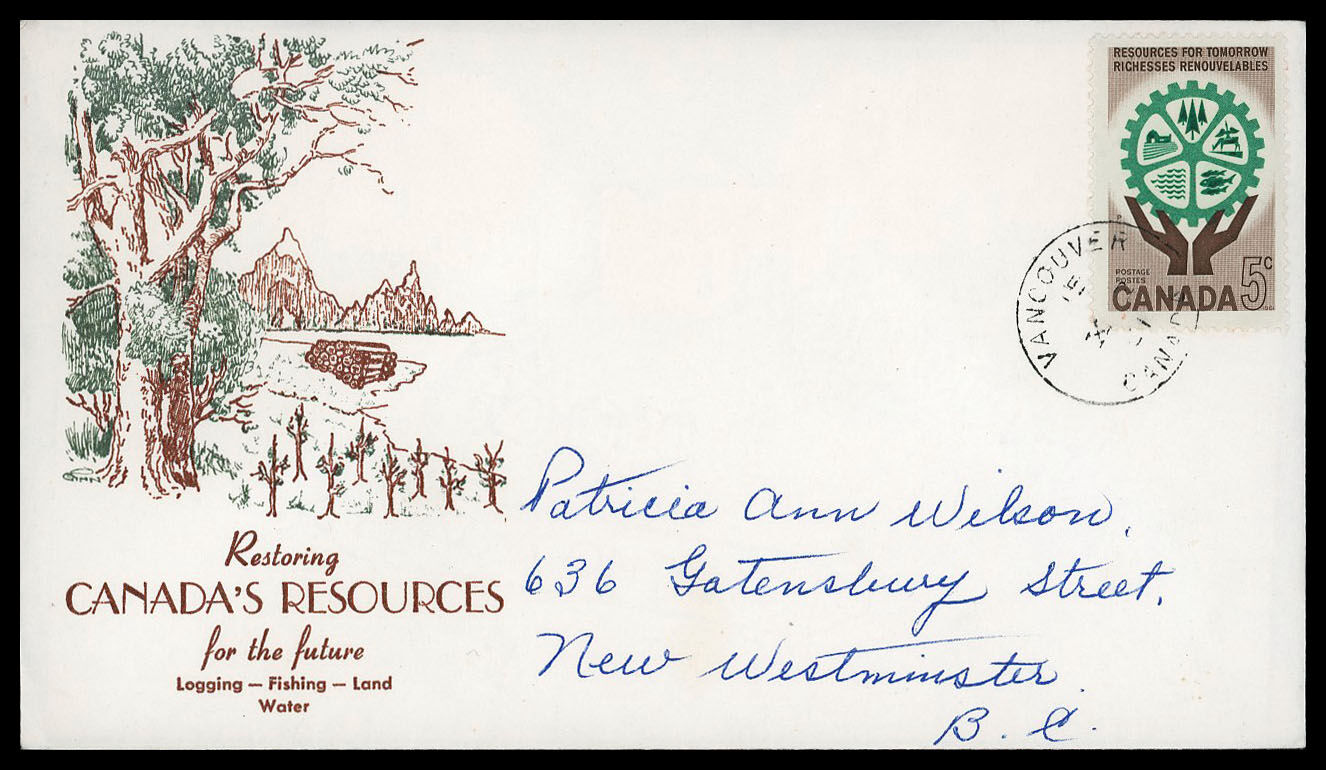 RESOURCES FOR TOMORROW
RICHESSES RENOUVELABLES
POSTAGE
POSTES
CANADA 5c
1961
VANCOUVER
CANADA
Restoring
CANADA'S RESOURCES
for the future
Logging — Fishing — Land
Water
Patricia Ann Wilson,
636 Gatensbury Street,
New Westminster
B. C.